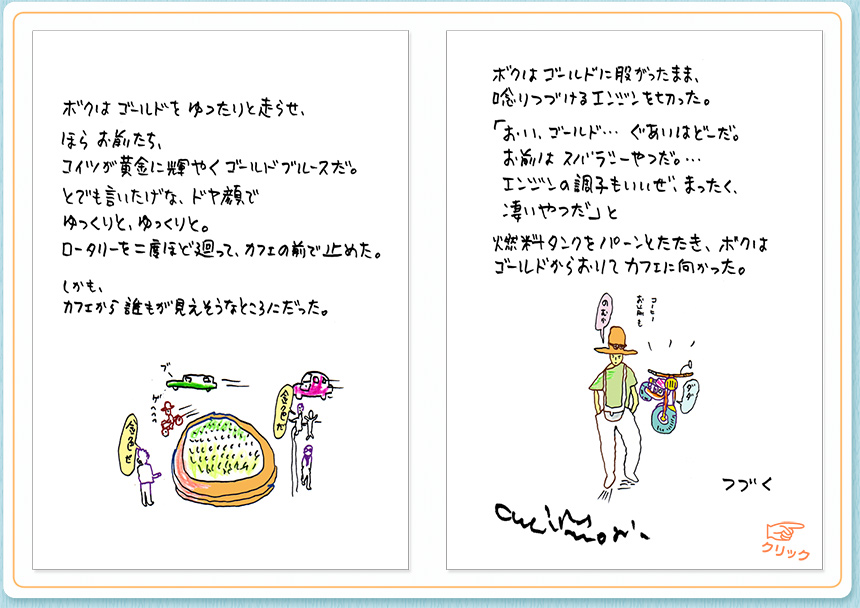 ボクは ゴールドを ゆったりと走らせ、
ほら お前たち、
コイツが黄金に輝やくゴールドブルースだ。
とでも言いたげな、ドヤ顔で
ゆっくりと、ゆっくりと。
ロータリーを二度ほど廻って、カフェの前で止めた。
しかも、
カフェから誰もが見えそうなところにだった。
ブー
ゲヘヘヘ
金色だ
金色ぜ
ボクはゴールドに股がったまま、
唸りつづけるエンジンを切った。
「おい、ゴールド… ぐあいはどーだ。
お前は スバラシーやつだ。…
エンジンの調子もいいぜ、まったく、
凄いやつだ」と
燃料タンクをパーンとたたき、ボクは
ゴールドからおりてカフェに向かった。
のむか
コーヒー
お前も
つづく
クリック